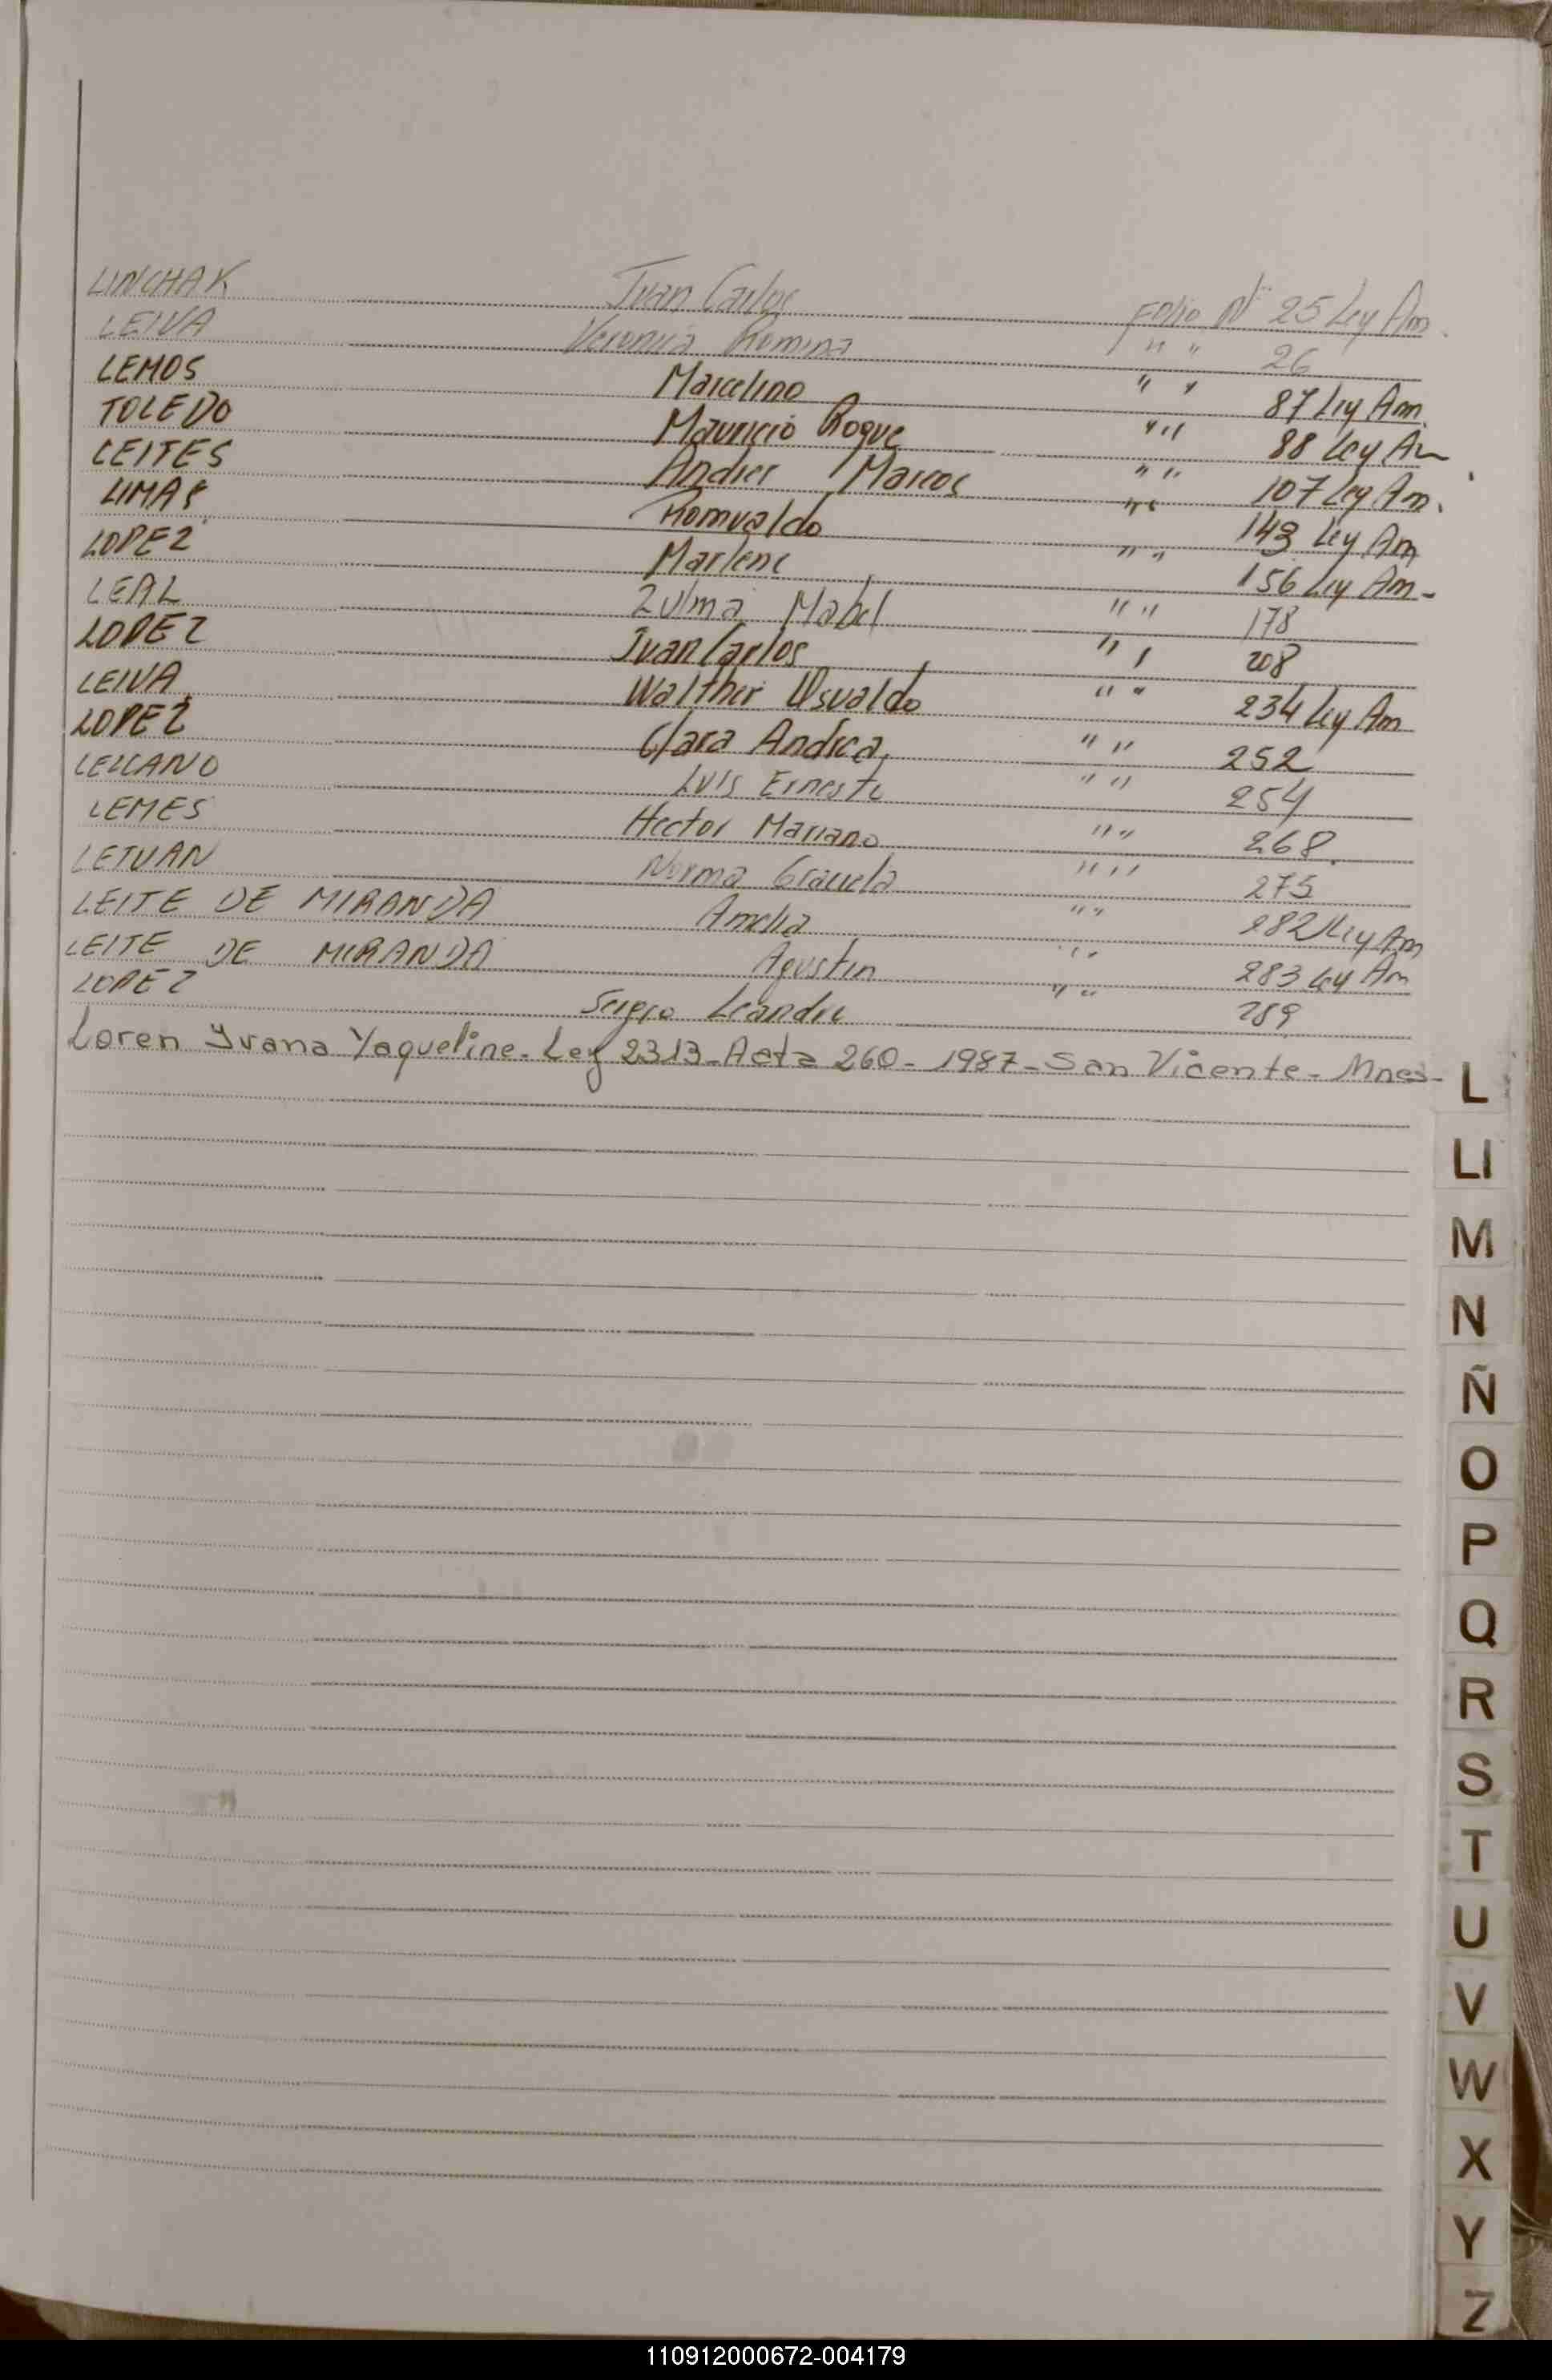 LINCHAK Juan Carlos Folio Nº 25 Ley Am.
LEIVA Veronica Romina " " 26
LEMOS Marcelino " " 87 Ley Am
TOLEDO Mauricio Roque " " 88 Ley Am
LEITES Andres Marcos " " 107 Ley Am.
LIMAS Romualdo " " 143 Ley Am
LOPEZ Marlene " " 156 Ley Am-
LEAL Zulma Mabel " " 178
LOPEZ Juan Carlos " " 208
LEIVA Walther Osvaldo " " 234 Ley Am
LOPEZ Clara Andrea " " 252
LEZCANO Luis Ernesto " " 254
LEMES Hector Mariano " " 268.
Norma Graciela " " 275
LEITE DE MIRANDA Amelia " " 282 Ley Am
LEITE DE MIRANDA Agustin " " 283 Ley Am
LOPEZ Sergio Leandro " " 289
Loren Ivana Yaqueline- Ley 2313-Acta 260- 1987-San Vicente- Mnes-
L
Ll
M
N
Ñ
O
P
Q
R
S
T
U
V
W
X
Y
Z
110912000672-004179